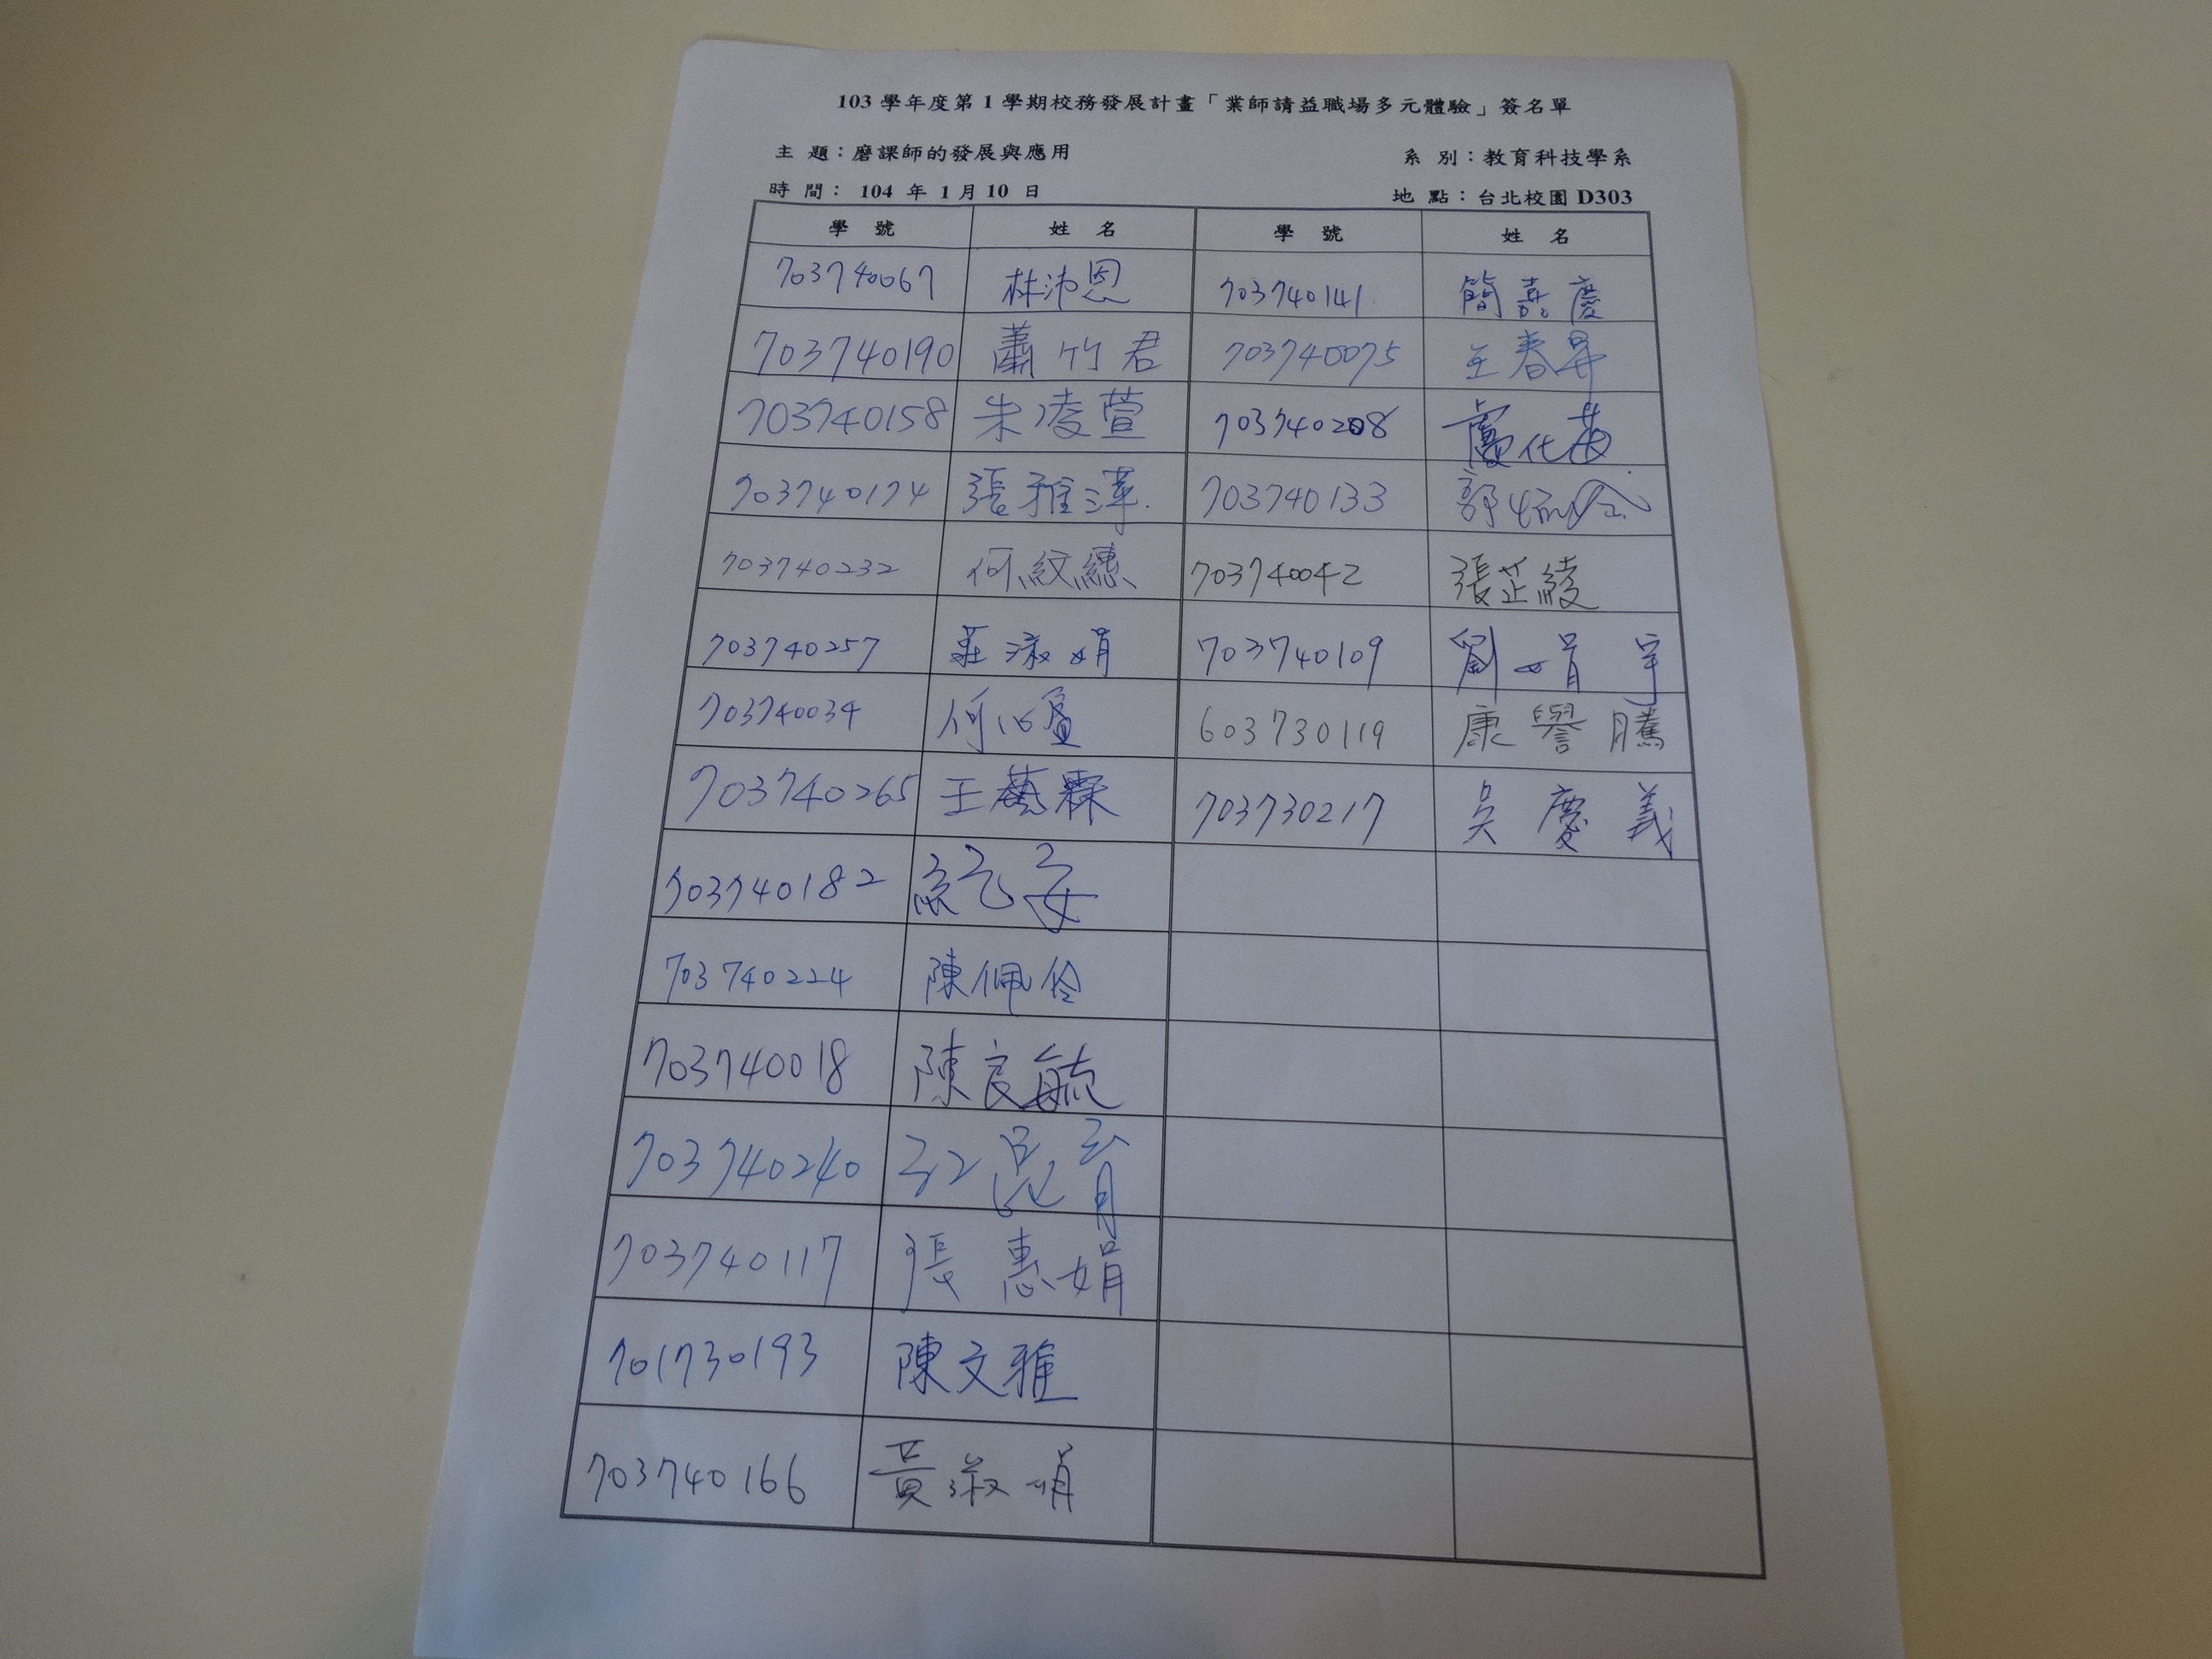 103 學年度第 1 學期校務發展計畫「業師請益職場多元體驗」簽名單
主 題：磨課師的發展與應用 系 別：教育科技學系
時 間： 104 年 1 月 10 日 地 點：台北校園 D303
學 號 姓 名 學 號 姓 名
703740067 林沛恩 703740141 簡嘉慶
703740190 蕭竹君 703740075 王春昇
703740158 朱凌萱 703740208 盧化茵
703740174 張雅萍 703740133 郭
703740232 何紋繐 703740042 張芷綾
703740257 莊淑娟 703740109 劉娟宇
703740034 何心盈 603730119 康譽騰
703740265 王藝霖 703730217 吳慶義
703740182
703740224 陳佩伶
703740018 陳良毓
703740240
703740117 張惠娟
701730193 陳文雅
703740166 黃淑娟